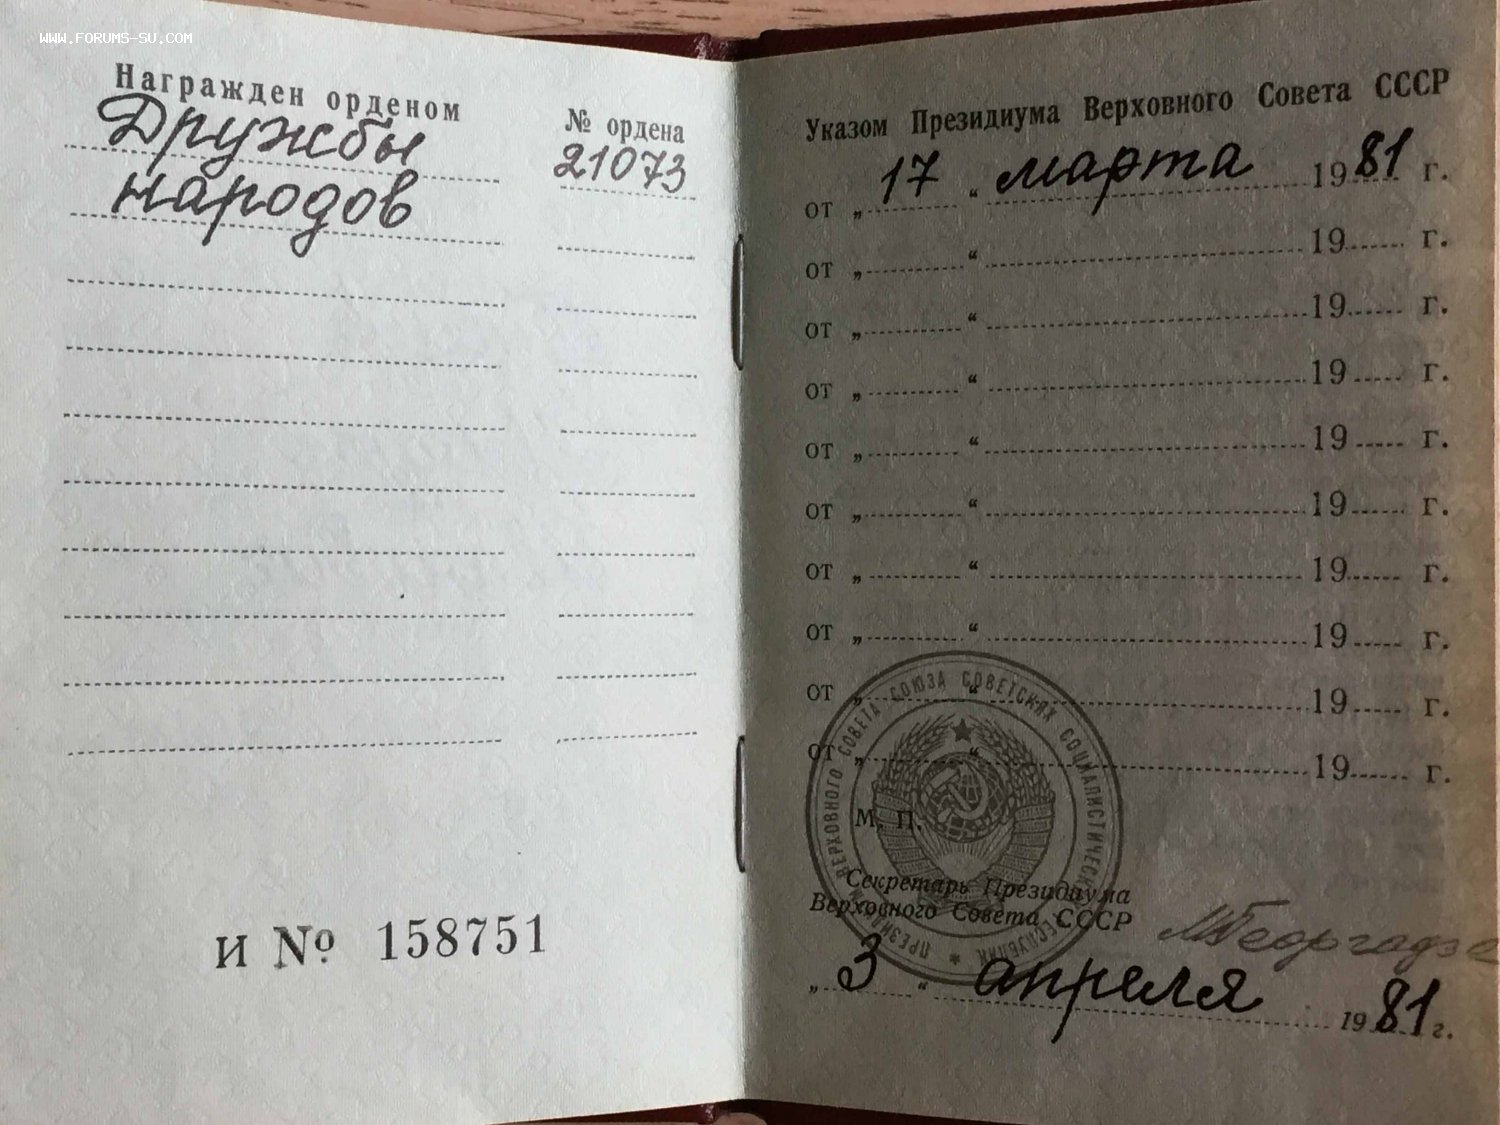 WWW.FORUMS-SU.COM
Награжден орденом
№ ордена
Дружбы
21073
народов
И № 158751
Указом Президиума Верховного Совета СССР
от „ 17 “ марта 1981 г.
от „ “ 19 г.
от „ “ 19 г.
от „ “ 19 г.
от „ “ 19 г.
от „ “ 19 г.
от „ “ 19 г.
от „ “ 19 г.
от „ “ 19 г.
от „ “ 19 г.
М. П.
ПРЕЗИДИУМ ВЕРХОВНОГО СОВЕТА СОЮЗА СОВЕТСКИХ СОЦИАЛИСТИЧЕСКИХ РЕСПУБЛИК
Секретарь Президиума
Верховного Совета СССР
МГеоргадзе
„ 3 “ апреля 1981 г.